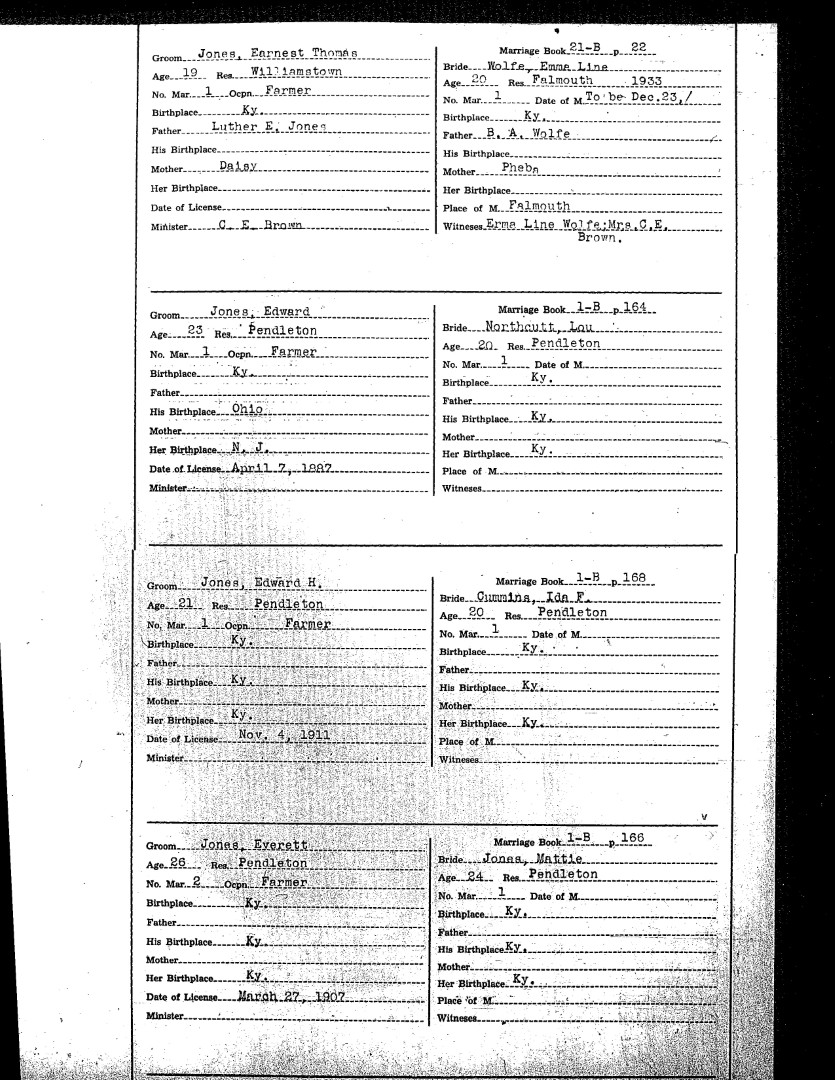 Groom Jones, Earnest Thomas
Age 19 Res. Williamstown
No. Mar. 1 Ocpn. Farmer
Birthplace Ky.
Father Luther E. Jones
His Birthplace
Mother Daisy
Her Birthplace
Date of License
Minister C. E. Brown
Marriage Book 21-B p. 22
Bride Wolfe, Emma Line
Age 20 Res. Falmouth 1933
No. Mar. 1 Date of M. To be Dec. 23,/
Birthplace Ky.
Father B. A. Wolfe
His Birthplace
Mother Pheba
Her Birthplace
Place of M. Falmouth
Witnesses Erma Line Wolfe; Mrs. C.E.
Brown.
Groom Jones, Edward
Age 23 Res. Pendleton
No. Mar. 1 Ocpn. Farmer
Birthplace Ky.
Father
His Birthplace Ohio
Mother
Her Birthplace N. J.
Date of License April 7, 1887
Minister
Marriage Book 1-B p. 164
Bride Northcutt, Lou
Age 20 Res. Pendleton
No. Mar. 1 Date of M.
Birthplace Ky.
Father
His Birthplace Ky.
Mother
Her Birthplace Ky.
Place of M.
Witnesses
Groom Jones, Edward H.
Age 21 Res. Pendleton
No. Mar. 1 Ocpn. Farmer
Birthplace Ky.
Father
His Birthplace Ky.
Mother
Her Birthplace Ky.
Date of License Nov. 4, 1911
Minister
Marriage Book 1-B p. 168
Bride Cummins, Ida F.
Age 20 Res. Pendleton
No. Mar. 1 Date of M.
Birthplace Ky.
Father
His Birthplace Ky.
Mother
Her Birthplace Ky.
Place of M.
Witnesses
Groom Jones, Everett
Age 26 Res. Pendleton
No. Mar. 2 Ocpn. Farmer
Birthplace Ky.
Father
His Birthplace Ky.
Mother
Her Birthplace Ky.
Date of License March 27, 1907
Minister
Marriage Book 1-B p. 166
Bride Jones, Mattie
Age 24 Res. Pendleton
No. Mar. 1 Date of M.
Birthplace Ky.
Father
His Birthplace Ky.
Mother
Her Birthplace Ky.
Place of M.
Witnesses